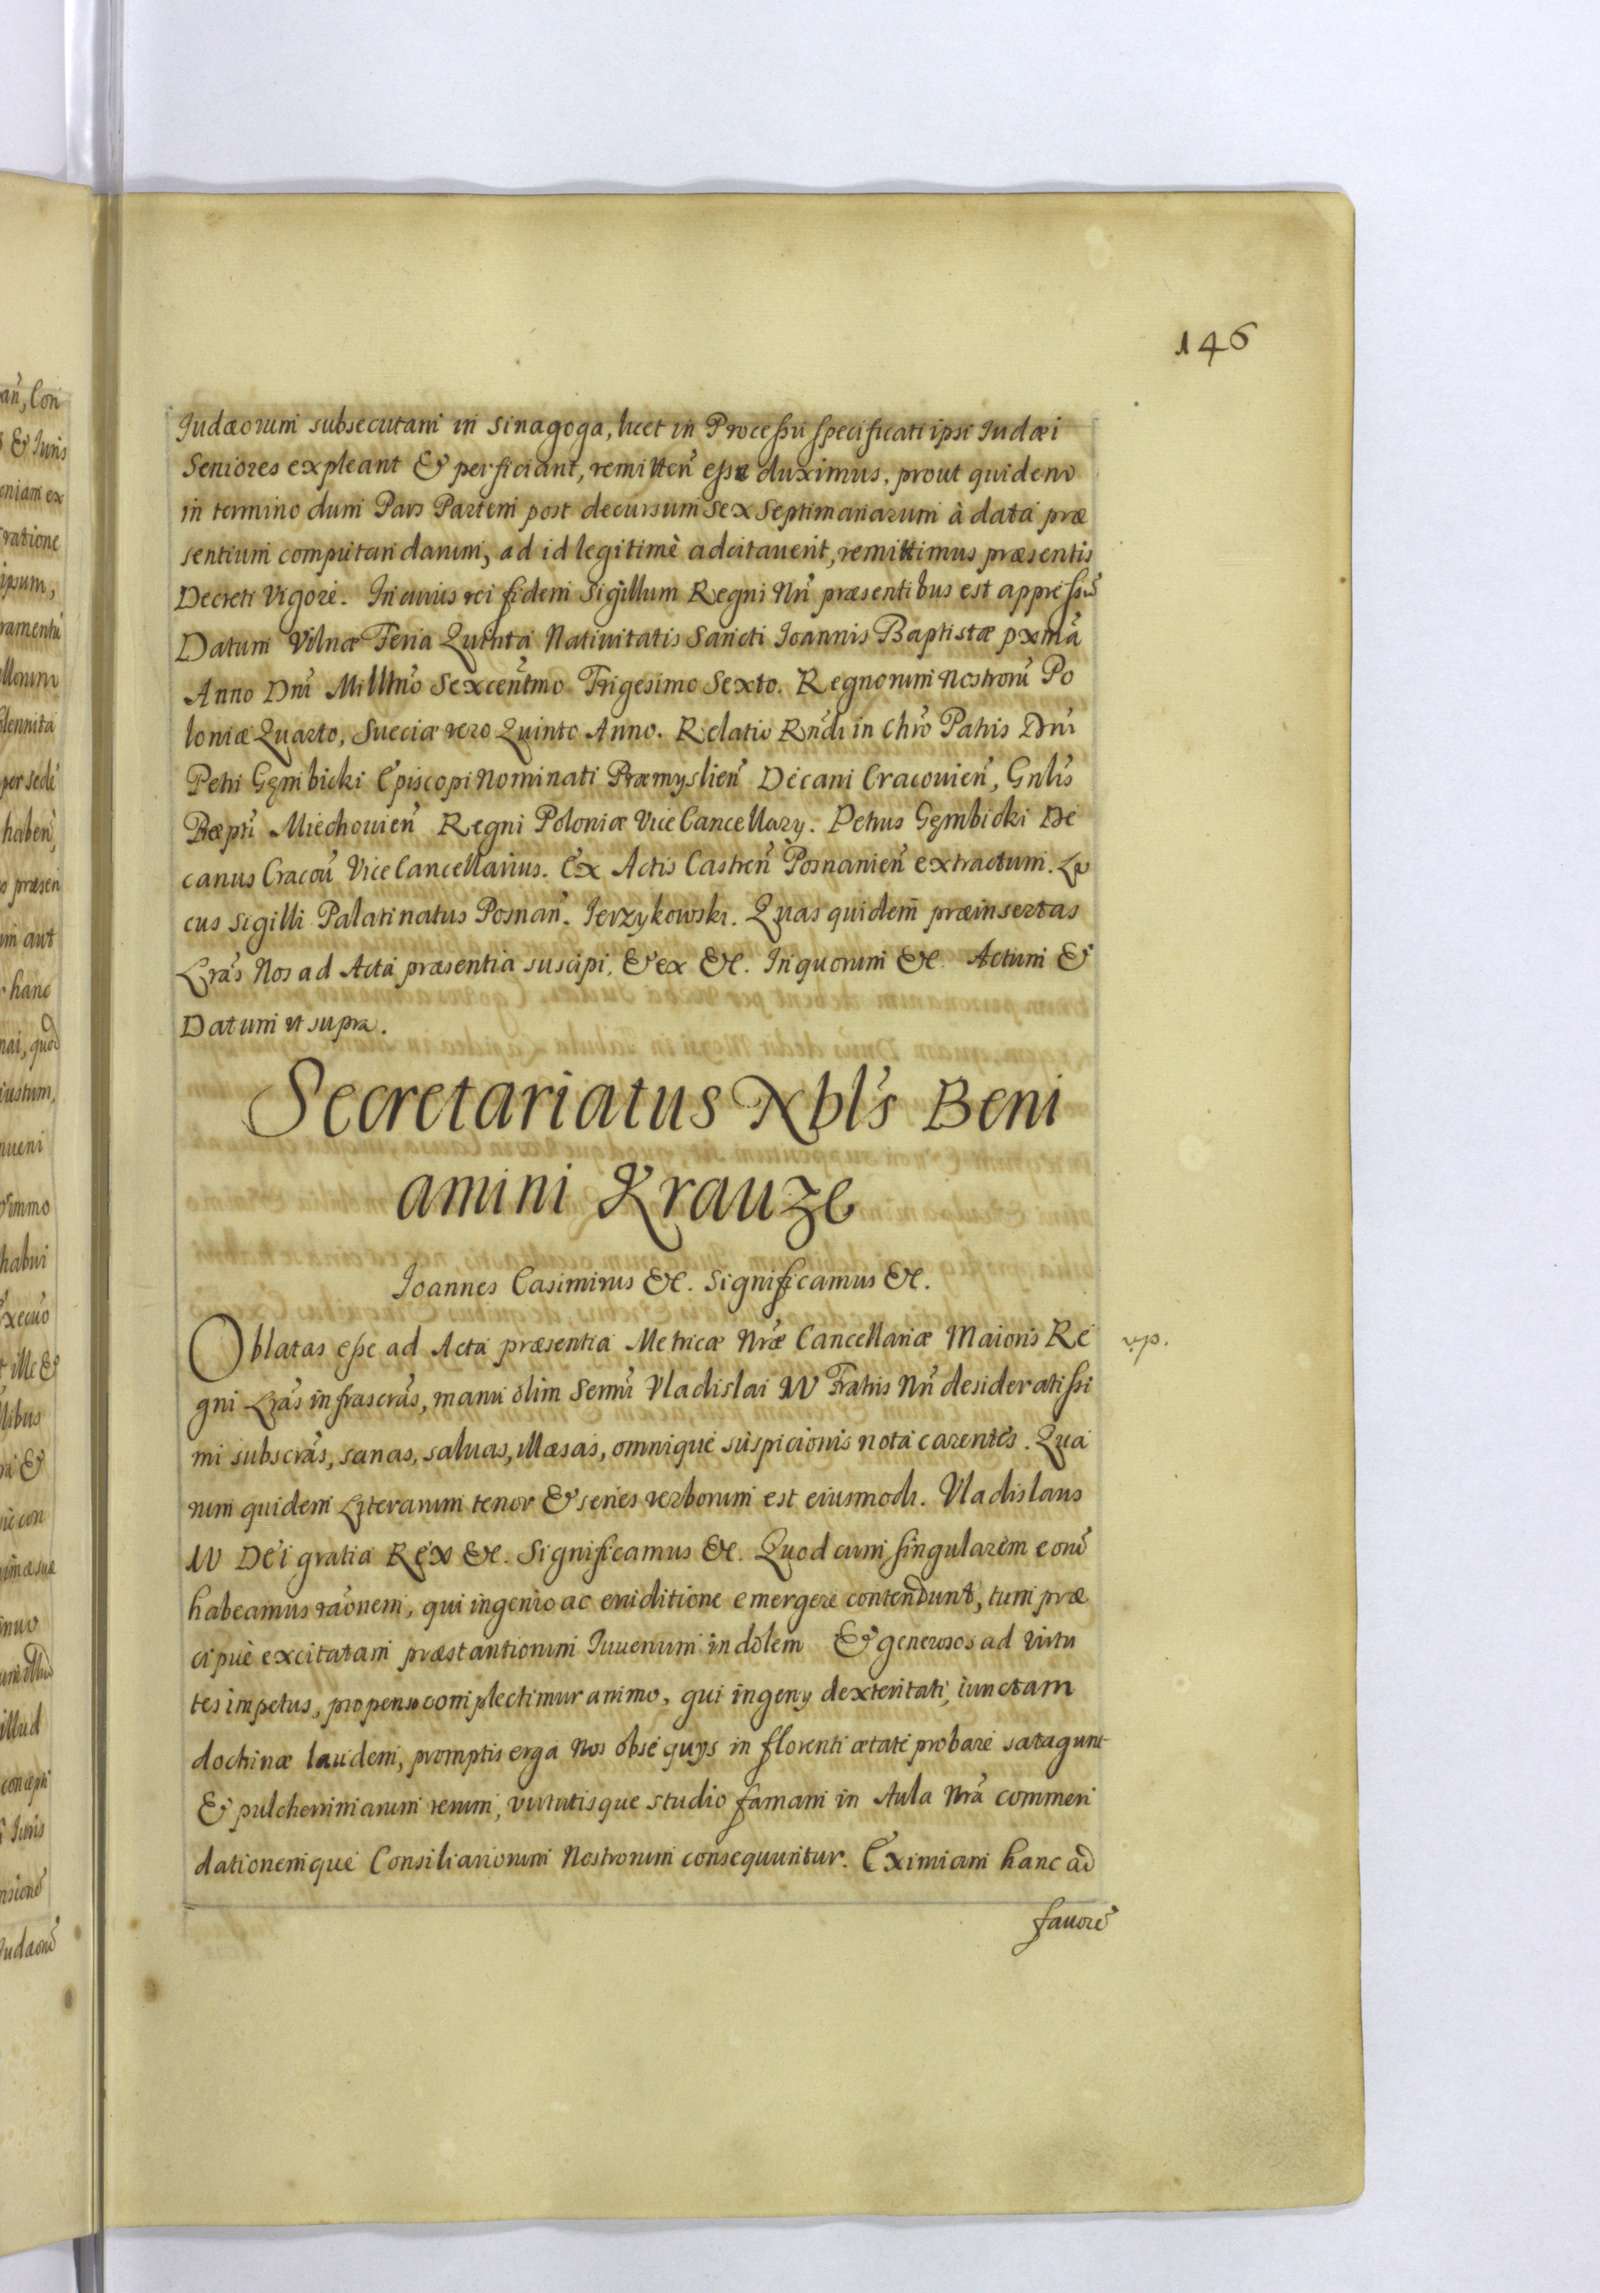 146
Judæorum subsecutam in Sinagoga, licet in Processu specificati ipsi Judæi
Seniores expleant & perficiant, remitten̄ esse duximus, prout quidem
in termino dum Pars Partem post decursum Sex Septimanarum à data præ
sentium computandarum, ad id legitimè adcitaverit, remittimus præsentis
Decreti Vigore. In cuius rei fidem Sigillum Regni Nr̄i præsentibus est appressū
Datum Vilnæ Feria Quinta Nativitatis Sancti Joannis Baptistæ pxmā
Anno Dn̄i Millmō Sexcentm̄o Trigesimo Sexto. Regnorum Nostrorū Po
loniæ Quarto, Sueciæ vero Quinto Anno. Relatio Rn̄di in Chr̄o Patris Dn̄i
Petri Gęmbicki Episcopi Nominati Præmyslien̄ Decani Cracovien̄, Gnl̄is
Præptī Miechovien̄ Regni Poloniæ ViceCancellarÿ. Petrus Gęmbicki De
canus Cracov̄ ViceCancellarius. Ex Actis Castren̄ Posnanien̄ extractum. Lo
cus Sigilli Palatinatus Posnan̄. Jerzykowski. Quas quidem præinsertas
Lrās Nos ad Acta præsentia suscipi, & ex &c. In quorum &c. Actum &
Datum ut supra.
Secretariatus Nbl̄s Beni
amini Krauze
Joannes Casimirus &c. Significamus &c.
Oblatas esse ad Acta præsentia Metricæ Nrǣ Cancellariæ Maioris Re
gni Lrās infrascrās, manu olim Sermī Vladislai IV Fratris Nr̄i desideratissi
mi subscrās, sanas, salvas, illæsas, omnique suspicionis nota carentes. Qua
rum quidem Literarum tenor & series verborum est eiusmodi. Vladislaus
IV Dei gratia Rex &c. Significamus &c. Quod cum singularem eorū
habeamus raōnem, qui ingenio ac eruditione emergere contendunt, tum præ
cipuè excitatam præstantiorum Juvenum indolem & generosos ad virtu
tes impetus, propenso complectimur animo, qui ingenÿ dexteritati, iunctam
doctrinæ laudem, promptis erga Nos obsequÿs in florenti ætate probare satagunt
& pulcherrimarum rerum, virtutisque studio famam in Aula Nrā commen
dationemque Consiliariorum Nostrorum consequuntur. Eximiam hanc ad
favorē